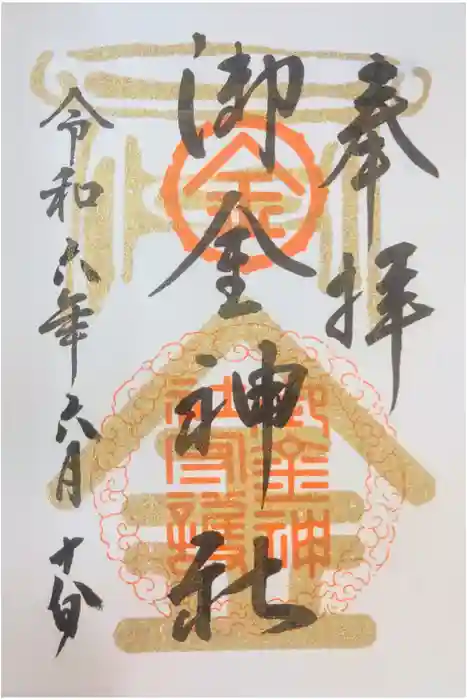 奉拝
御金神社
令和六年六月十八日
金
金
御金神
社守護